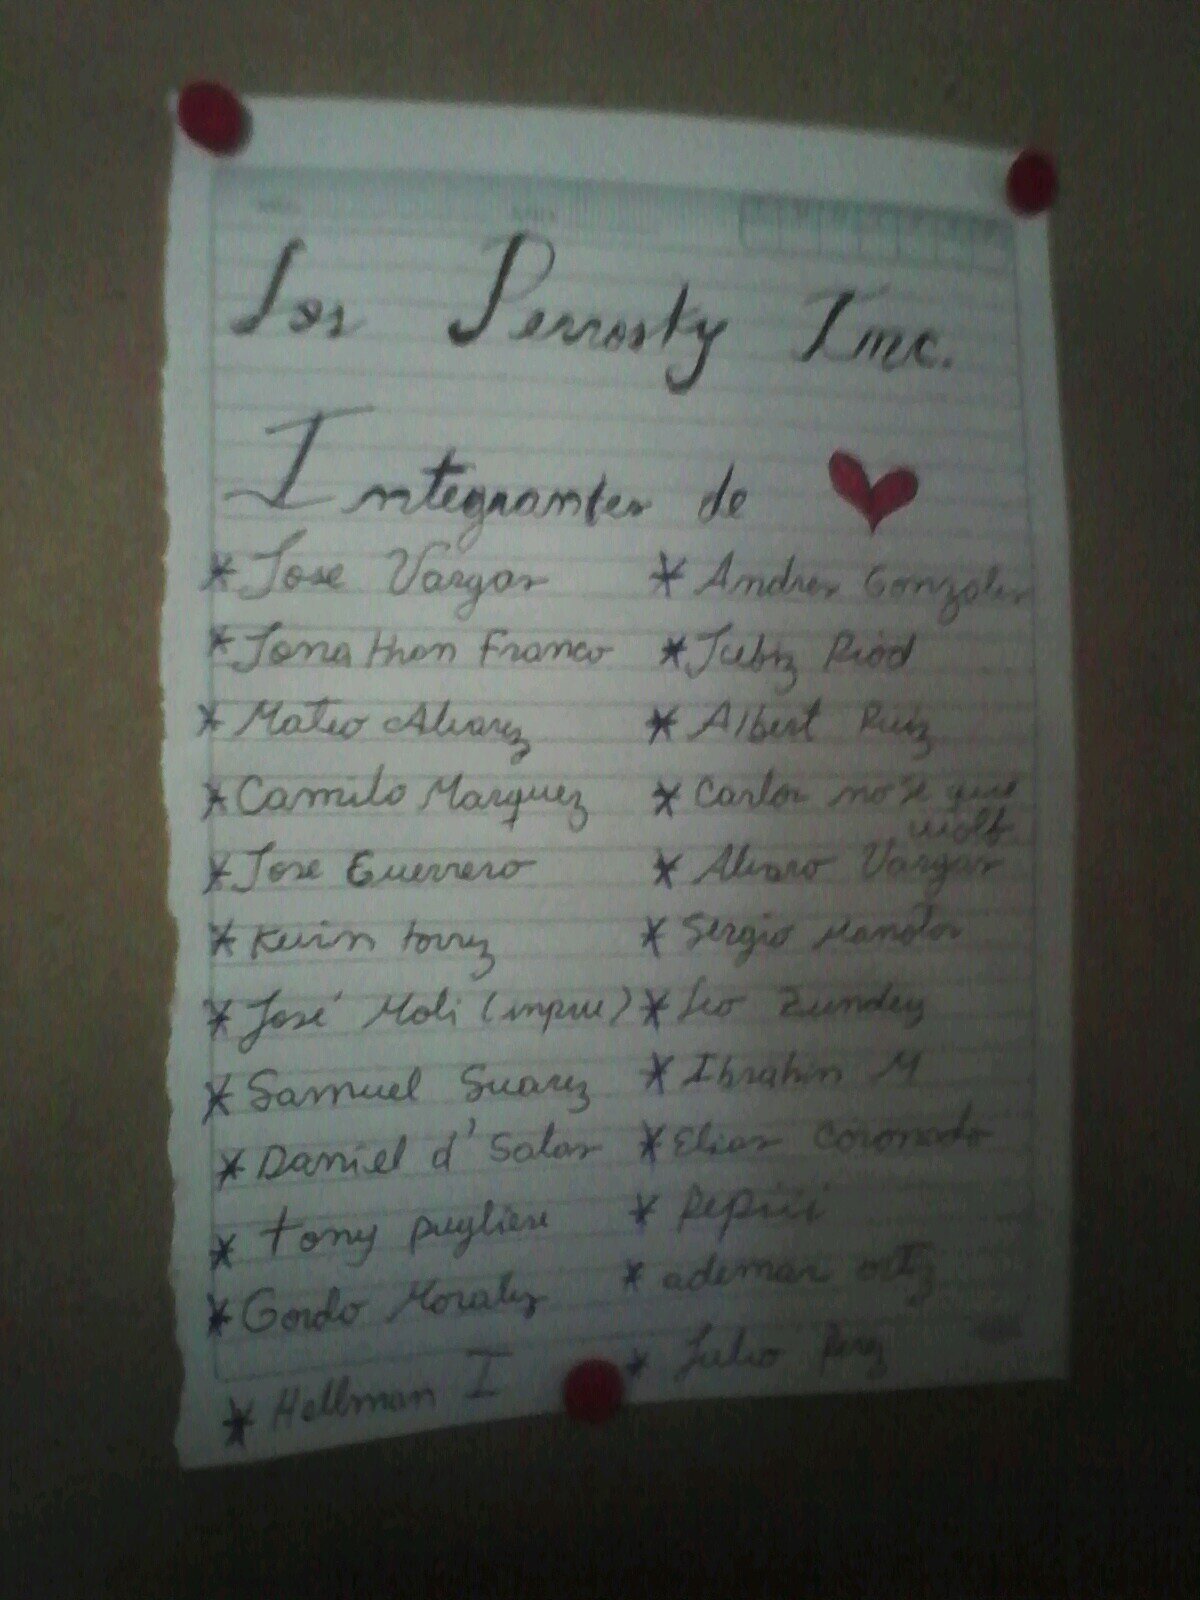 Los Perrosky Inc.
Integrantes de
* Jose Vargas
* Jonathan Franco
* Mateo Alvarez
* Camilo Marquez
* Jose Guerrero
* Kevin torrez
* José Moli (inpue)
* Samuel Suarez
* Daniel d' Salas
* tony pugliese
* Gordo Moralez
* Hellman I
* Andres Gonzales
* Riod
* Albert Ruiz
* Carlos no se que
wolf
* Alvaro Vargas
* Sergio
* Leo Zundey
* Ibrahin M
* Elias Coronado
* Pepiii
* ademar ortiz
* Julio Perez